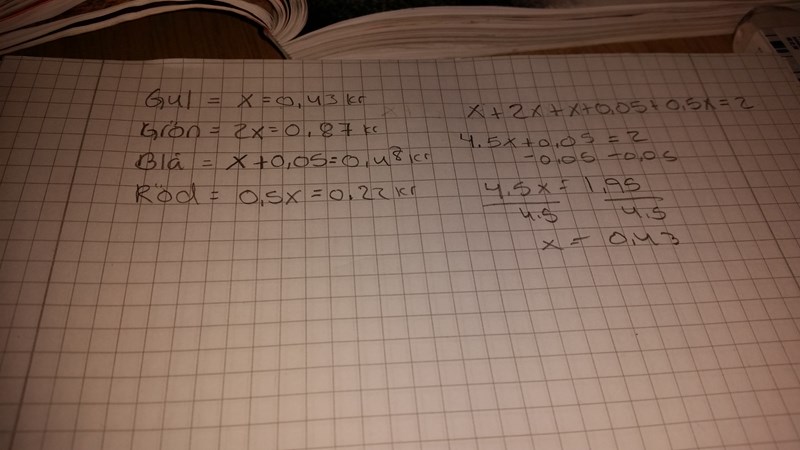 Gul = x = 0,43 kr
Grön = 2x = 0,87 kr
Blå = x + 0,05 = 0,48 kr
Röd = 0,5x = 0,22 kr
x + 2x + x + 0,05 + 0,5x = 2
4.5x + 0,05 = 2
-0,05 -0,05
4.5x = 1,95
4.5 4.5
x = 0,43